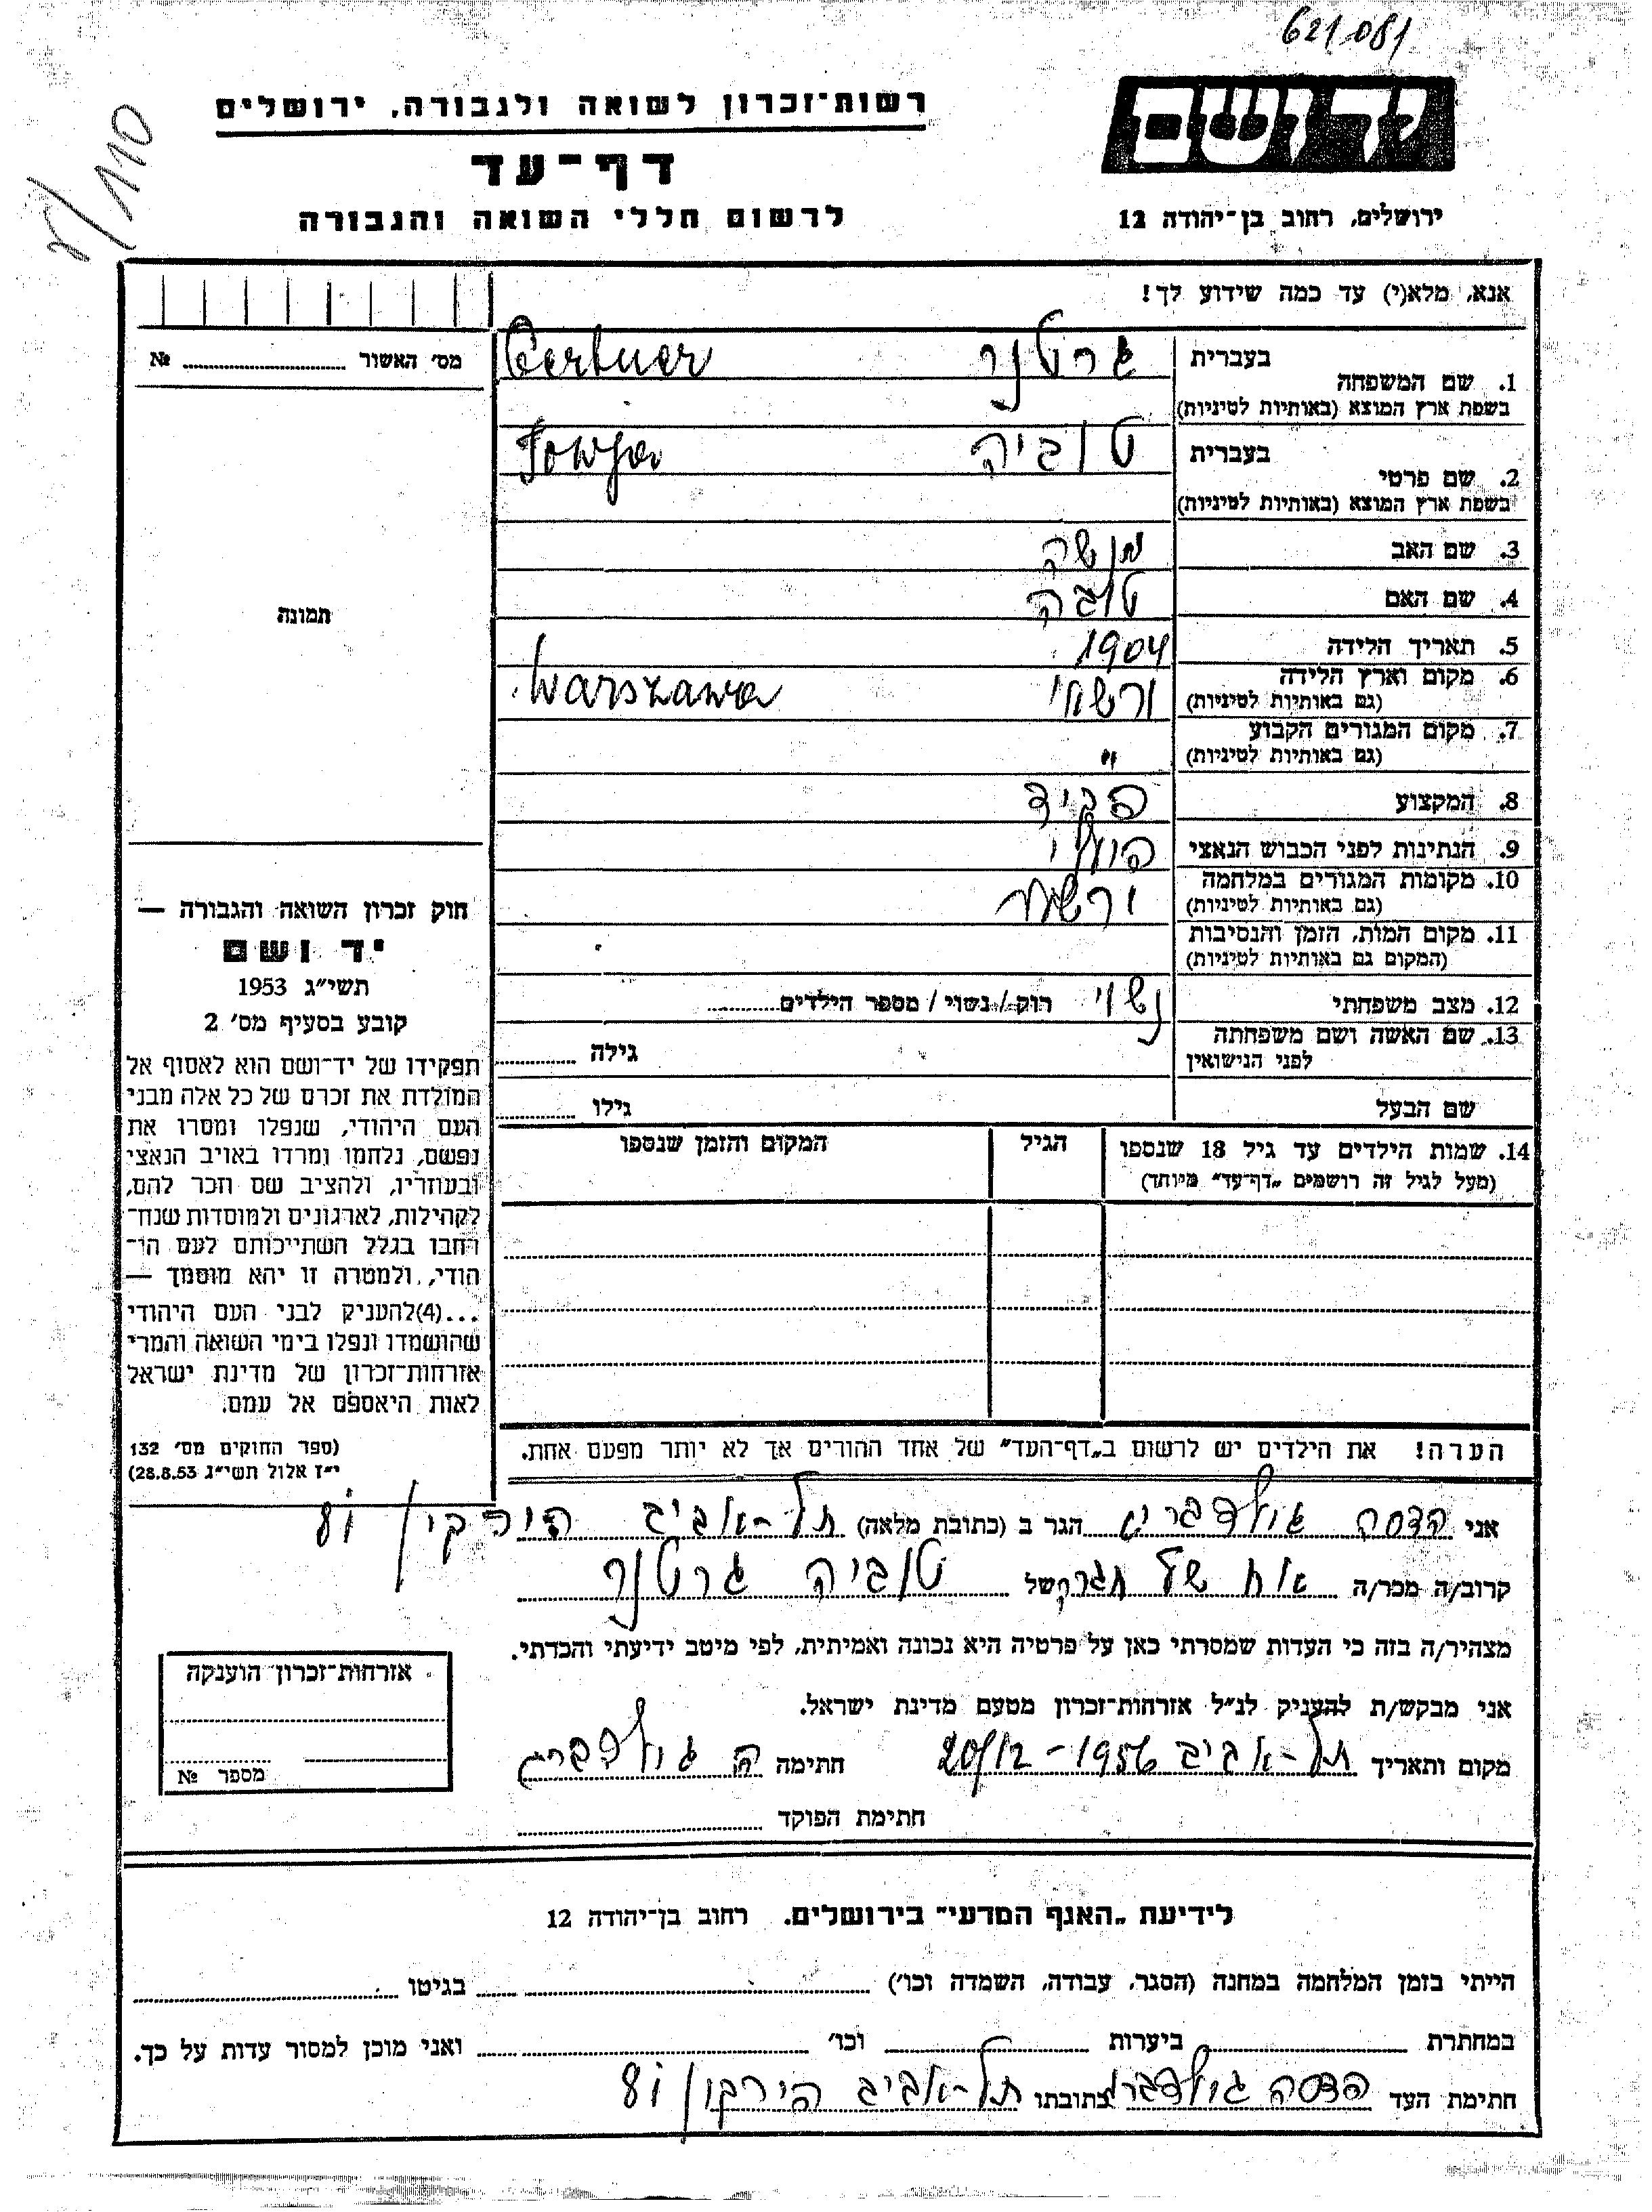 621081
רשות־זכרון לשואה ולגבורה, ירושלים
יד ושם
110
דף־עד
לרשום חללי השואה והגבורה
ירושלים, רחוב בן־יהודה 12
אנא, מלא(י) עד כמה שידוע לך!
מס׳ האשור № 
1. שם המשפחה
בעברית גרטנר Gertner
בשפת ארץ המוצא (באותיות לטיניות)
2. שם פרטי
בעברית טוביה Towja
בשפת ארץ המוצא (באותיות לטיניות)
3. שם האב משה
4. שם האם טובה
תמונה
5. תאריך הלידה 1904
6. מקום וארץ הלידה ורשה Warszawa
(גם באותיות לטיניות)
7. מקום המגורים הקבוע "
(גם באותיות לטיניות)
8. המקצוע פקיד
9. הנתינות לפני הכבוש הנאצי פולני
10. מקומות המגורים במלחמה ורשה
(גם באותיות לטיניות)
11. מקום המות, הזמן והנסיבות
(המקום גם באותיות לטיניות)
12. מצב משפחתי נשוי רוק / נשוי / מספר הילדים
13. שם האשה ושם משפחתה
לפני הנישואין
גילה
שם הבעל גילו
14. שמות הילדים עד גיל 18 שנספו
(מעל לגיל זה רושמים „דף־עד" מיוחד)
הגיל
המקום והזמן שנספו
חוק זכרון השואה והגבורה —
יד ושם
תשי״ג 1953
קובע בסעיף מס׳ 2
תפקידו של יד־ושם הוא לאסוף אל
המולדת את זכרם של כל אלה מבני
העם היהודי, שנפלו ומסרו את
נפשם, נלחמו ומרדו באויב הנאצי
ובעוזריו, ולהציב שם וזכר להם,
לקהילות, לארגונים ולמוסדות שנח־
רבו בגלל השתייכותם לעם היה־
ודי, ולמטרה זו יהא מוסמך —
...(4)להעניק לבני העם היהודי
שהושמדו ונפלו בימי השואה והמרי
אזרחות־זכרון של מדינת ישראל
לאות היאספם אל עמם.
(ספר החוקים מס׳ 132
י״ז אלול תשי״ג 28.8.53)
הערה! את הילדים יש לרשום ב„דף־העד" של אחד ההורים אך לא יותר מפעם אחת.
אני הדסה גולדברג הגר ב (כתובת מלאה) תל-אביב הירקון
קרוב/ה מכר/ה של טוביה גרטנר
מצהיר/ה בזה כי העדות שמסרתי כאן על פרטיה היא נכונה ואמיתית, לפי מיטב ידיעתי והכרתי.
אני מבקש/ת להעניק לנ״ל אזרחות־זכרון מטעם מדינת ישראל.
מקום ותאריך תל-אביב 20/12-1956 חתימה ה גולדברג
חתימת הפוקד
אזרחות־זכרון הוענקה
מספר №
לידיעת „האגף המדעי" בירושלים. רחוב בן־יהודה 12
הייתי בזמן המלחמה במחנה (הסגר, עבודה, השמדה וכו׳) בגיטו
במחתרת ביערות וכו׳ ואני מוכן למסור עדות על כך.
חתימת העד הדסה גולדברג כתובתו תל-אביב הירקון